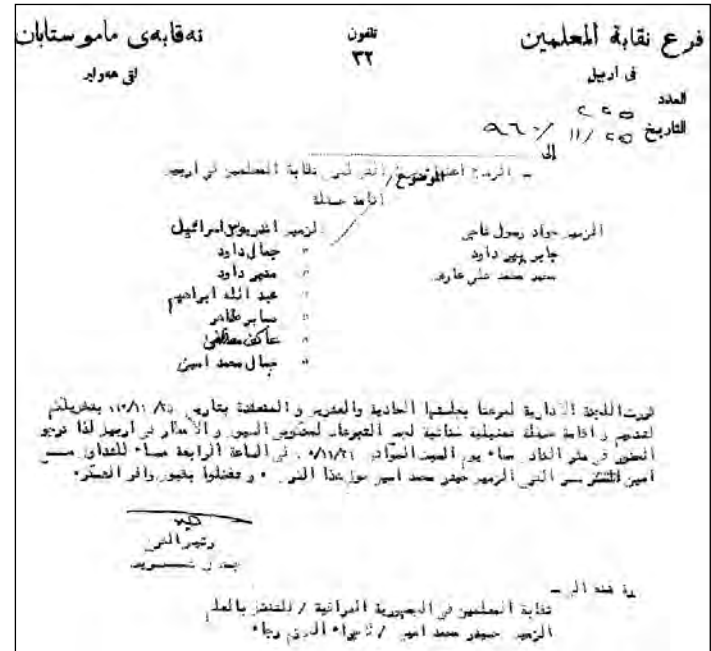 فرع نقابة المعلمين
في اربيل
تلفون
٣٢
نەقابەی مامو ستایان
لقی هەولیر
العدد ٢٢٥
التاريخ ٢٥ / ١١ / ٩٦٠
إلى
الموضوع / نقابة المعلمين في اربيل
اقامة حفلة
الزميل جواد رسول ناجي
جابر بير داود
محمد علي عارف
الزميل اندريوس اسرائيل
" جمال داود
" منير داود
" عبد الله ابراهيم
" صابر طاهر
" عاكف مصطفى
" جمال محمد امين
قررت اللجنة الادارية لفرعنا بجلستها الحادية والعشرين و المنعقدة بتاريخ
لتقديم و اقامة حفلة تمثيلية غنائية لجمع التبرعات لمنكوبي السيول و الامطار في اربيل لذا نرجو
الحضور في مقر النادي مساء يوم السبت في الساعة الرابعة مساء للتداول مع
امين سر الفرع الزميل حيدر محمد امين حول هذا الفرض ٠ و تفضلوا بقبول وافر الشكر ٠
رئيس الفرع
نقابة المعلمين في الجمهورية العراقية / للتفضل بالعلم
الزميل حيدر محمد امين / رجاء